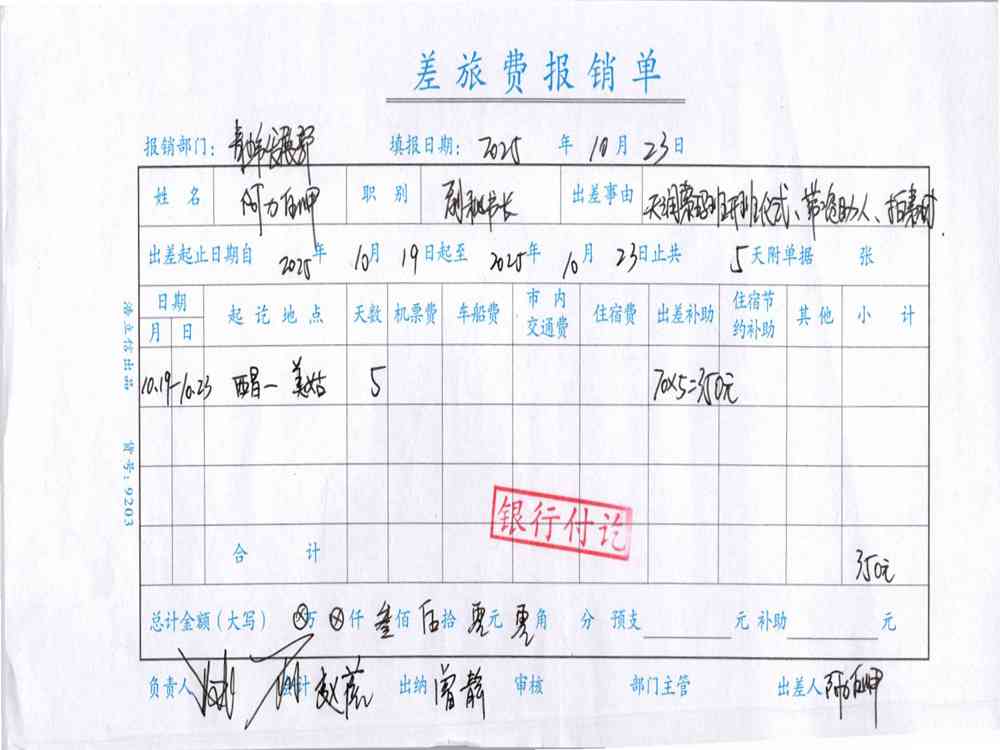 差旅费报销单
报销部门： 发展部 填报日期： 2025 年 10 月 23 日
姓名 阿力百呷 职别 副秘书长 出差事由 开班仪式、带 助人、拍素材
出差起止日期自 2025 年 10 月 19 日起至 2025 年 10 月 23 日止共 5 天附单据 张
日期 起讫地点 天数 机票费 车船费 市内交通费 住宿费 出差补助 住宿节约补助 其他 小计
月 日
10.19-10.23 西昌一美姑 5 70×5=350元
银行付讫
合计 350元
总计金额（大写） ⊗万 ⊗仟 叁佰 伍拾 零元 零角 分 预支 元 补助 元
负责人 会计 赵 出纳 曾静 审核 部门主管 出差人 阿力百呷
浩立信出品 货号：9203